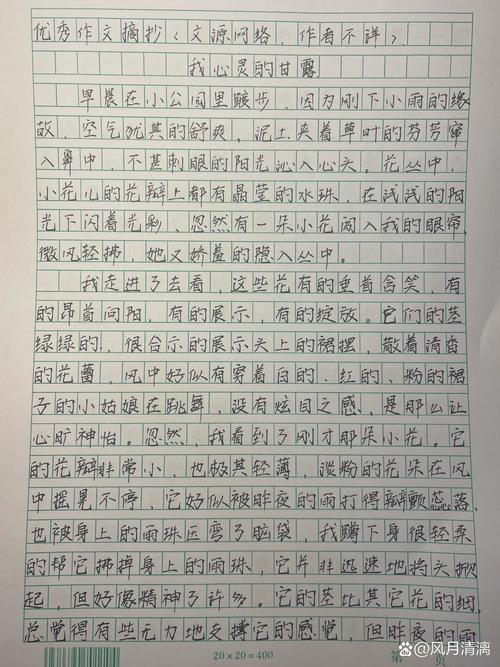 优秀作文摘抄〈文源网络，作者不详〉.
我心灵的甘露
早晨在小公园里踱步，因为刚下小雨的缘
故，空气尤其的舒爽，泥土夹着草叶的芬芳窜
入鼻中，不甚刺眼的阳光沁入心头。花丛中，
小花儿的花瓣上都有晶莹的水珠，在浅浅的阳
光下闪着光彩，忽然有一朵小花闯入我的眼帘，
微风轻拂，她又娇羞的隐入丛中。
我走进了去看，这些花有的垂首含笑，有
的昂首向阳，有的展示，有的绽放。它们的茎
绿绿的，很合示的展示头上的裙摆，散着清香
的花蕾，风中好似有穿着白的、红的、粉的裙
子的小姑娘在跳舞，没有炫目之感，是那么让
心旷神怡。忽然，我看到了刚才那朵小花。它
的花瓣非常小，也极其轻薄，淡粉的花朵在风
中摇晃不停，它好似被昨夜的雨打得瓣颤蕊落，
也被身上的雨珠压弯了脑袋，我蹲下身很轻柔
的帮它拂掉身上的雨珠，它并非迅速地将头掀
起，但好像精神了许多。它的茎比其它花的细，
总觉得有些无力地支撑它的感觉，但昨夜的雨
20×20=400
第 页
百家号@风月清漓